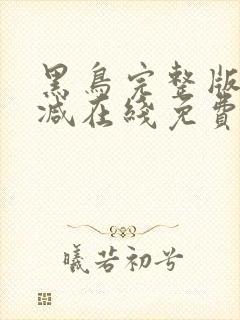 黑鳥完整版
減在綫免費
曦若初兮